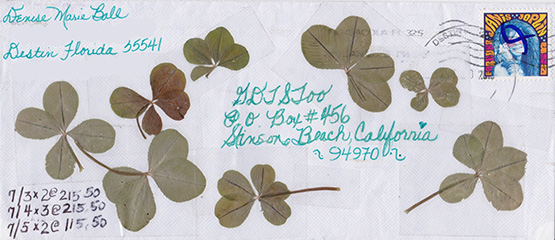 Denise Marie Ball
Destin Florida 55541
GDTSToo
PO Box #456
Stinson Beach, California
~ 94970 ~
7/3 x 2 @ 215.50
7/4 x 3 @ 215.50
7/5 x 2 @ 115.50
325
JANIS JOPLIN